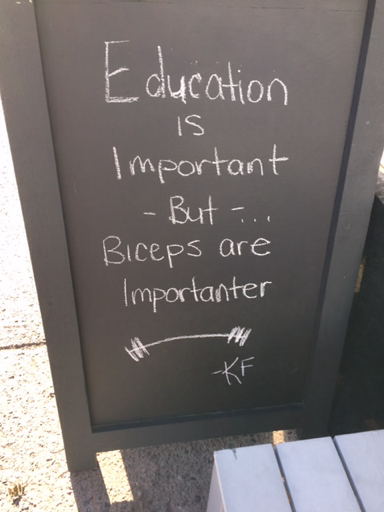 Education
is
Important
- But - ...
Biceps are
Importanter
-KF